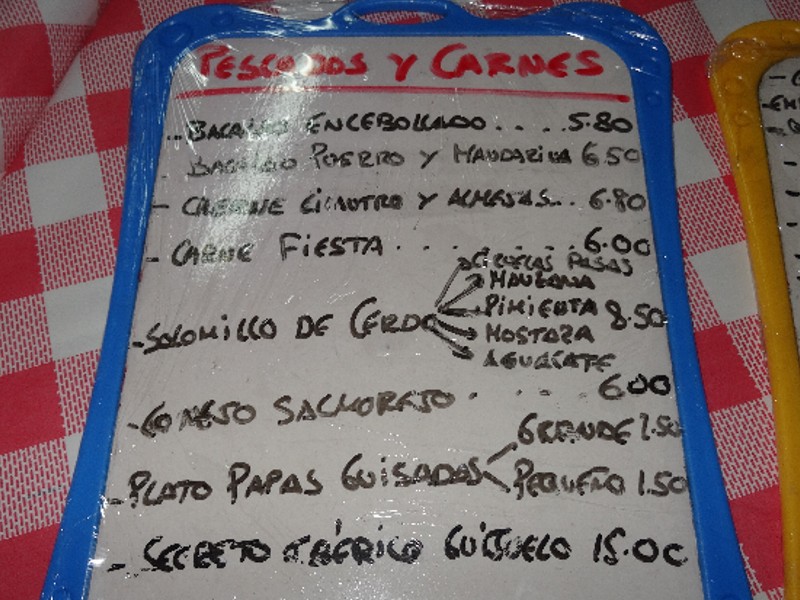 PESCADOS Y CARNES
- BACALAO ENCEBOLLADO.....5.80
- BACALAO PUERRO Y MANDARINA 6.50
- CHERNE CILANTRO Y ALMEJAS... 6.80
- CARNE FIESTA..... 6.00
CIRUELAS PASAS
MANZANA
- SOLOMILLO DE CERDO PIMIENTA 8.50
MOSTAZA
AGUACATE
- CONEJO SALMOREJO.... 6.00
GRANDE 2.50
- PLATO PAPAS GUISADAS PEQUEÑO 1.50
- SECRETO IBÉRICO GUIJUELO 15.00